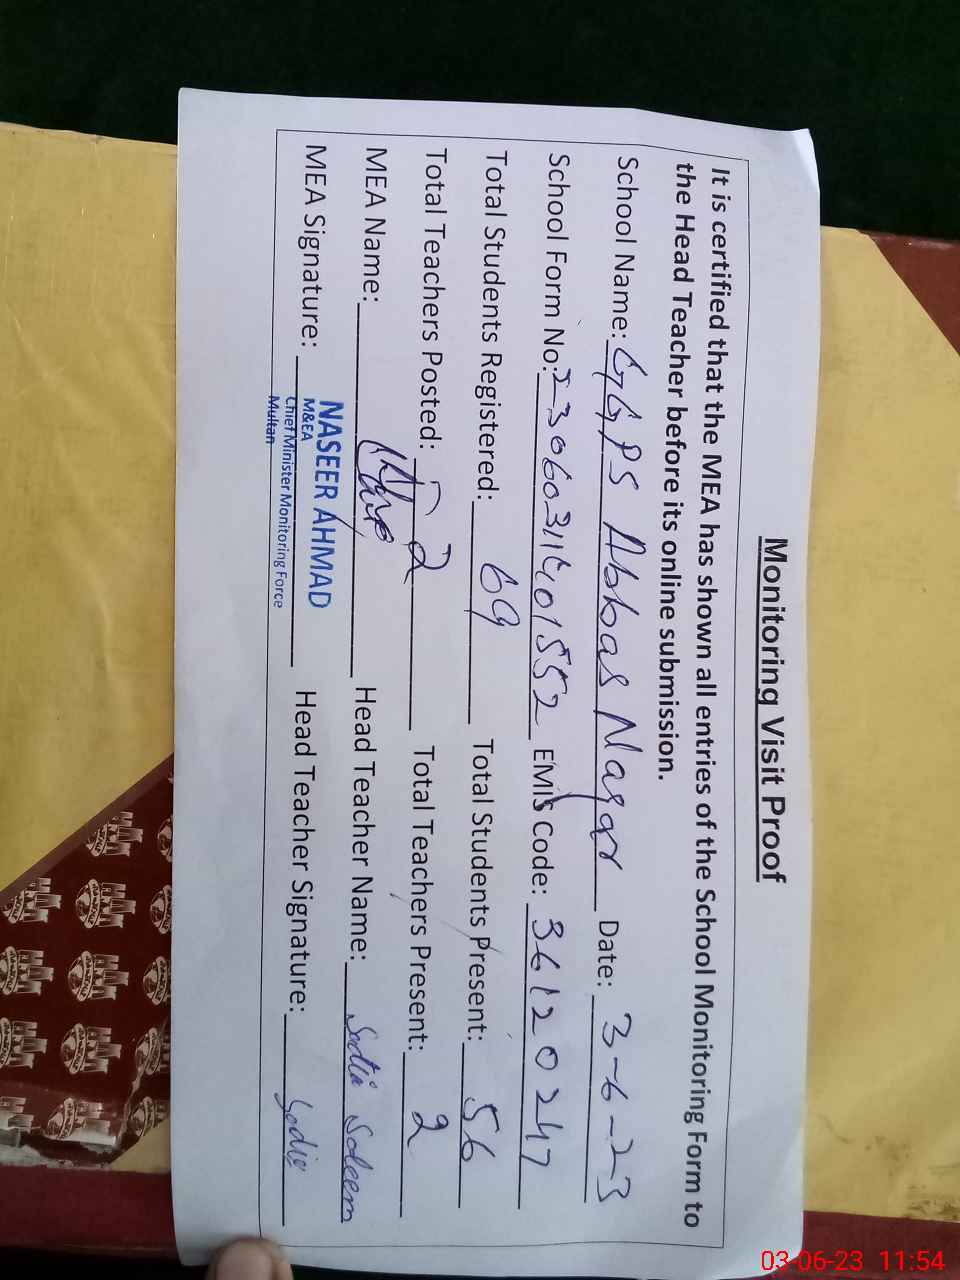 Monitoring Visit Proof
It is certified that the MEA has shown all entries of the School Monitoring Form to
the Head Teacher before its online submission.
School Name: GGPS Abbas Nagar Date: 3-6-23
School Form No: EMIS Code: 36120247
Total Students Registered: 69 Total Students Present: 56
Total Teachers Posted: 2 Total Teachers Present: 2
MEA Name: Head Teacher Name: Sadia Saleem
MEA Signature: Head Teacher Signature: Sadia
NASEER AHMAD
M&EA
Chief Minister Monitoring Force
Multan
03-06-23 11:54